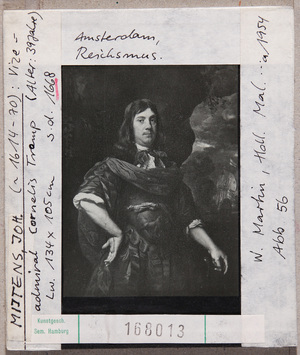 MIJTENS, JOH. (~ 1614-70): Vize-
admiral Cornelis Tromp (Alter: 39 Jahre)
Lw. 134 x 105 cm s.d. 1668
Amsterdam,
Reichsmus.
W. Martin, Holl. Mal. a 1954
Abb 56
Kunstgesch.
Sem. Hamburg
168013